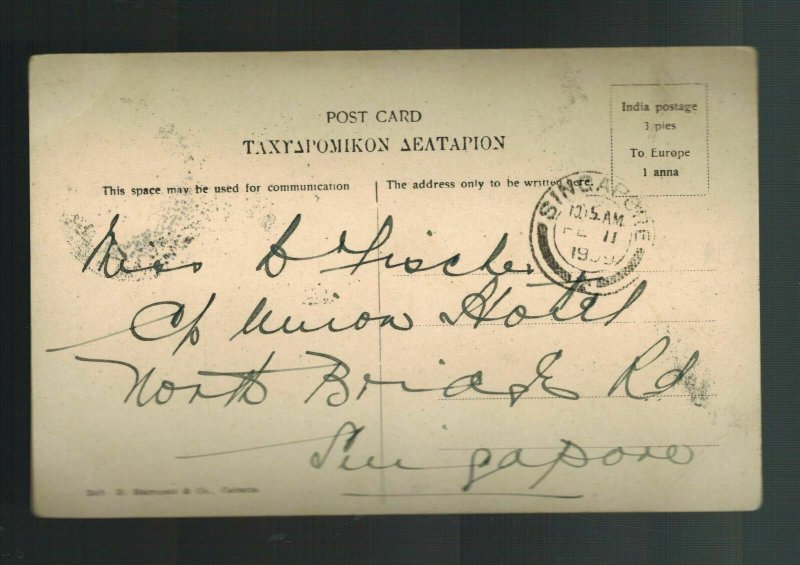 POST CARD
ΤΑΧΥΔΡΟΜΙΚΟΝ ΔΕΛΤΑΡΙΟΝ
India postage
3 pies
To Europe
1 anna
This space may be used for communication
The address only to be written here.
SINGAPORE
10.15 AM
FE 11
Miss D Fischer
C/o Union Hotel
North Bridge Rd
Singapore
& Co., Calcutta